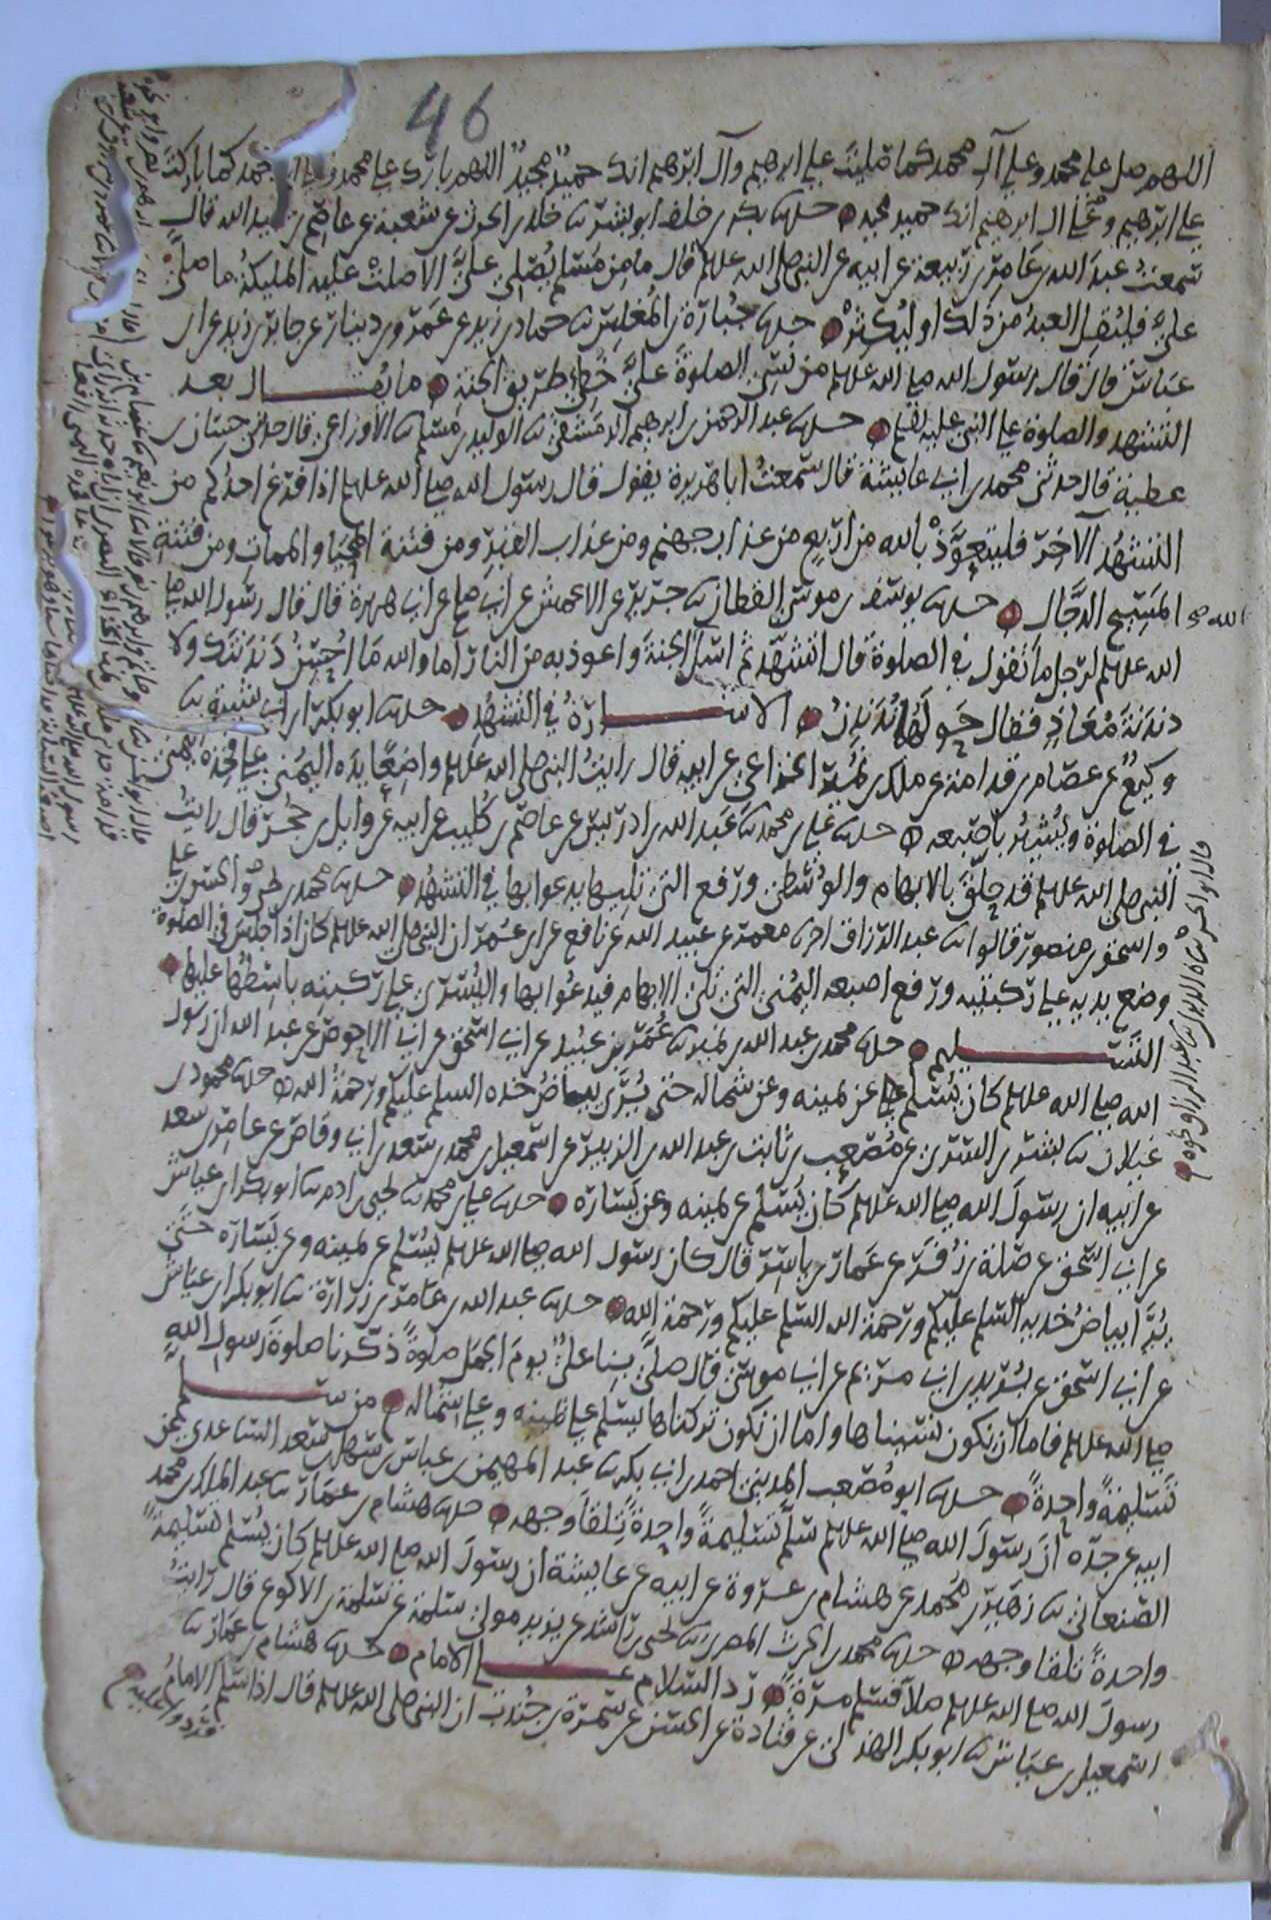 46
اللهم صل على محمد وعلى آل محمد كما صليت على ابرهيم وآل ابرهيم انك حميد مجيد اللهم بارك على محمد وعلى ال محمد كما باركت
على ابرهيم وعلى ال ابرهيم انك حميد مجيد حدثنا بكر بن خلف ابو بشر ثنا خالد بن الحرث عن شعبة عن عاصم بن عبيد الله قال
سمعت عبد الله بن عامر بن ربيعة عن ابيه عن النبي صلى الله عليه وسلم قال ما من مسلم يصلي علي الا صلت عليه المليكة ما صلى
علي فليقل العبد من ذلك او ليكثر حدثنا جبارة بن المغلس ثنا حماد بن زيد عن عمرو بن دينار عن جابر بن زيد عن ابن
عباس قال قال رسول الله صلى الله عليه وسلم من نسي الصلوة علي خطئ طريق الجنة ما يقال بعد
التشهد والصلوة على النبي عليه السلام حدثنا عبد الرحمن بن ابرهيم الدمشقي ثنا الوليد بن مسلم ثنا الأوزاعي قال حدثني حسان بن
عطية قال حدثني محمد بن ابي عايشة قال سمعت ابا هريرة يقول قال رسول الله صلى الله عليه وسلم اذا فرغ احدكم من
التشهد الآخر فليتعوذ بالله من اربع من عذاب جهنم ومن عذاب القبر ومن فتنة المحيا والممات ومن فتنة
المسيح الدجال حدثنا يوسف بن موسى القطان ثنا جرير عن الاعمش عن ابي صالح عن ابي هريرة قال قال رسول الله صلى
الله عليه وسلم لرجل ما تقول في الصلوة قال اتشهد ثم اسل الجنة واعوذ به من النار اما والله ما احسن دندنتك ولا
دندنة معاذ فقال حولها ندندن الاشارة في التشهد حدثنا ابو بكر بن ابي شيبة ثنا
وكيع عن عصام بن قدامة عن ملك بن نمير الخزاعي عن ابيه قال رايت النبي صلى الله عليه وسلم واضعا يده اليمنى على فخذه اليمنى
في الصلوة ويشير باصبعه حدثنا علي بن محمد ثنا عبد الله بن ادريس عن عاصم بن كليب عن ابيه عن وايل بن حجر قال رايت
النبي صلى الله عليه وسلم قد حلق بالابهام والوسطى ورفع التي تليها يدعو بها في التشهد حدثنا محمد بن يحيى والحسن بن علي
واسحق بن منصور قالوا ثنا عبد الرزاق اخبرنا معمر عن عبيد الله عن نافع عن ابن عمر ان النبي صلى الله عليه وسلم كان اذا جلس في الصلوة
وضع يديه على ركبتيه ورفع اصبعه اليمنى التي تلي الابهام فيدعوا بها واليسرى على ركبتيه باسطها عليها
التسليم حدثنا محمد بن عبد الله بن نمير ثنا عمر بن عبيد عن ابي اسحق عن ابي الاحوص عن عبد الله ان رسول
الله صلى الله عليه وسلم كان يسلم عن يمينه وعن شماله حتى يرى بياض خده السلم عليكم ورحمة الله حدثنا محمود بن
غيلان ثنا بشر بن السري عن مصعب بن ثابت بن عبد الله بن الزبير عن اسمعيل بن محمد بن سعد بن ابي وقاص عن عامر بن سعد
عن ابيه ان رسول الله صلى الله عليه وسلم كان يسلم عن يمينه وعن يساره حدثنا علي بن محمد ثنا يحيى بن ادم ثنا ابو بكر بن عياش
عن ابي اسحق عن صلة بن زفر عن عمار بن ياسر قال كان رسول الله صلى الله عليه وسلم يسلم عن يمينه وعن يساره حتى
يرى بياض خديه السلم عليكم ورحمة الله السلم عليكم ورحمة الله حدثنا عبد الله بن عامر بن زرارة ثنا ابو بكر بن عياش
عن ابي اسحق عن بريد بن ابي مريم عن ابي موسى قال صلى بنا علي يوم الجمل صلوة ذكرنا صلوة رسول الله
صلى الله عليه وسلم فاما ان نكون نسيناها واما ان نكون تركناها يسلم على يمينه وعلى شماله من سلم
تسليمة واحدة حدثنا ابو مصعب المديني احمد بن ابي بكر ثنا عبد المهيمن بن عباس بن سهل بن سعد الساعدي عن
ابيه عن جده ان رسول الله صلى الله عليه وسلم سلم تسليمة واحدة تلقا وجهه حدثنا هشام بن عمار ثنا عبد الملك بن محمد
الصنعاني ثنا زهير بن محمد عن هشام بن عروة عن ابيه عن عايشة ان رسول الله صلى الله عليه وسلم كان يسلم تسليمة
واحدة تلقا وجهه حدثنا محمد بن الحرث المصري ثنا يحيى بن راشد عن يزيد مولى سلمة عن سلمة بن الاكوع قال رايت
رسول الله صلى الله عليه وسلم صلا فسلم مرة رد السلام على الامام حدثنا هشام بن عمار ثنا
اسمعيل بن عياش ثنا ابو بكر الهذلي عن قتادة عن الحسن عن سمرة بن جندب ان النبي صلى الله عليه وسلم قال اذا سلم الامام
فردوا عليه
قال ابو الحسن ثناه الدبري ثنا عبد الرزاق نحوه